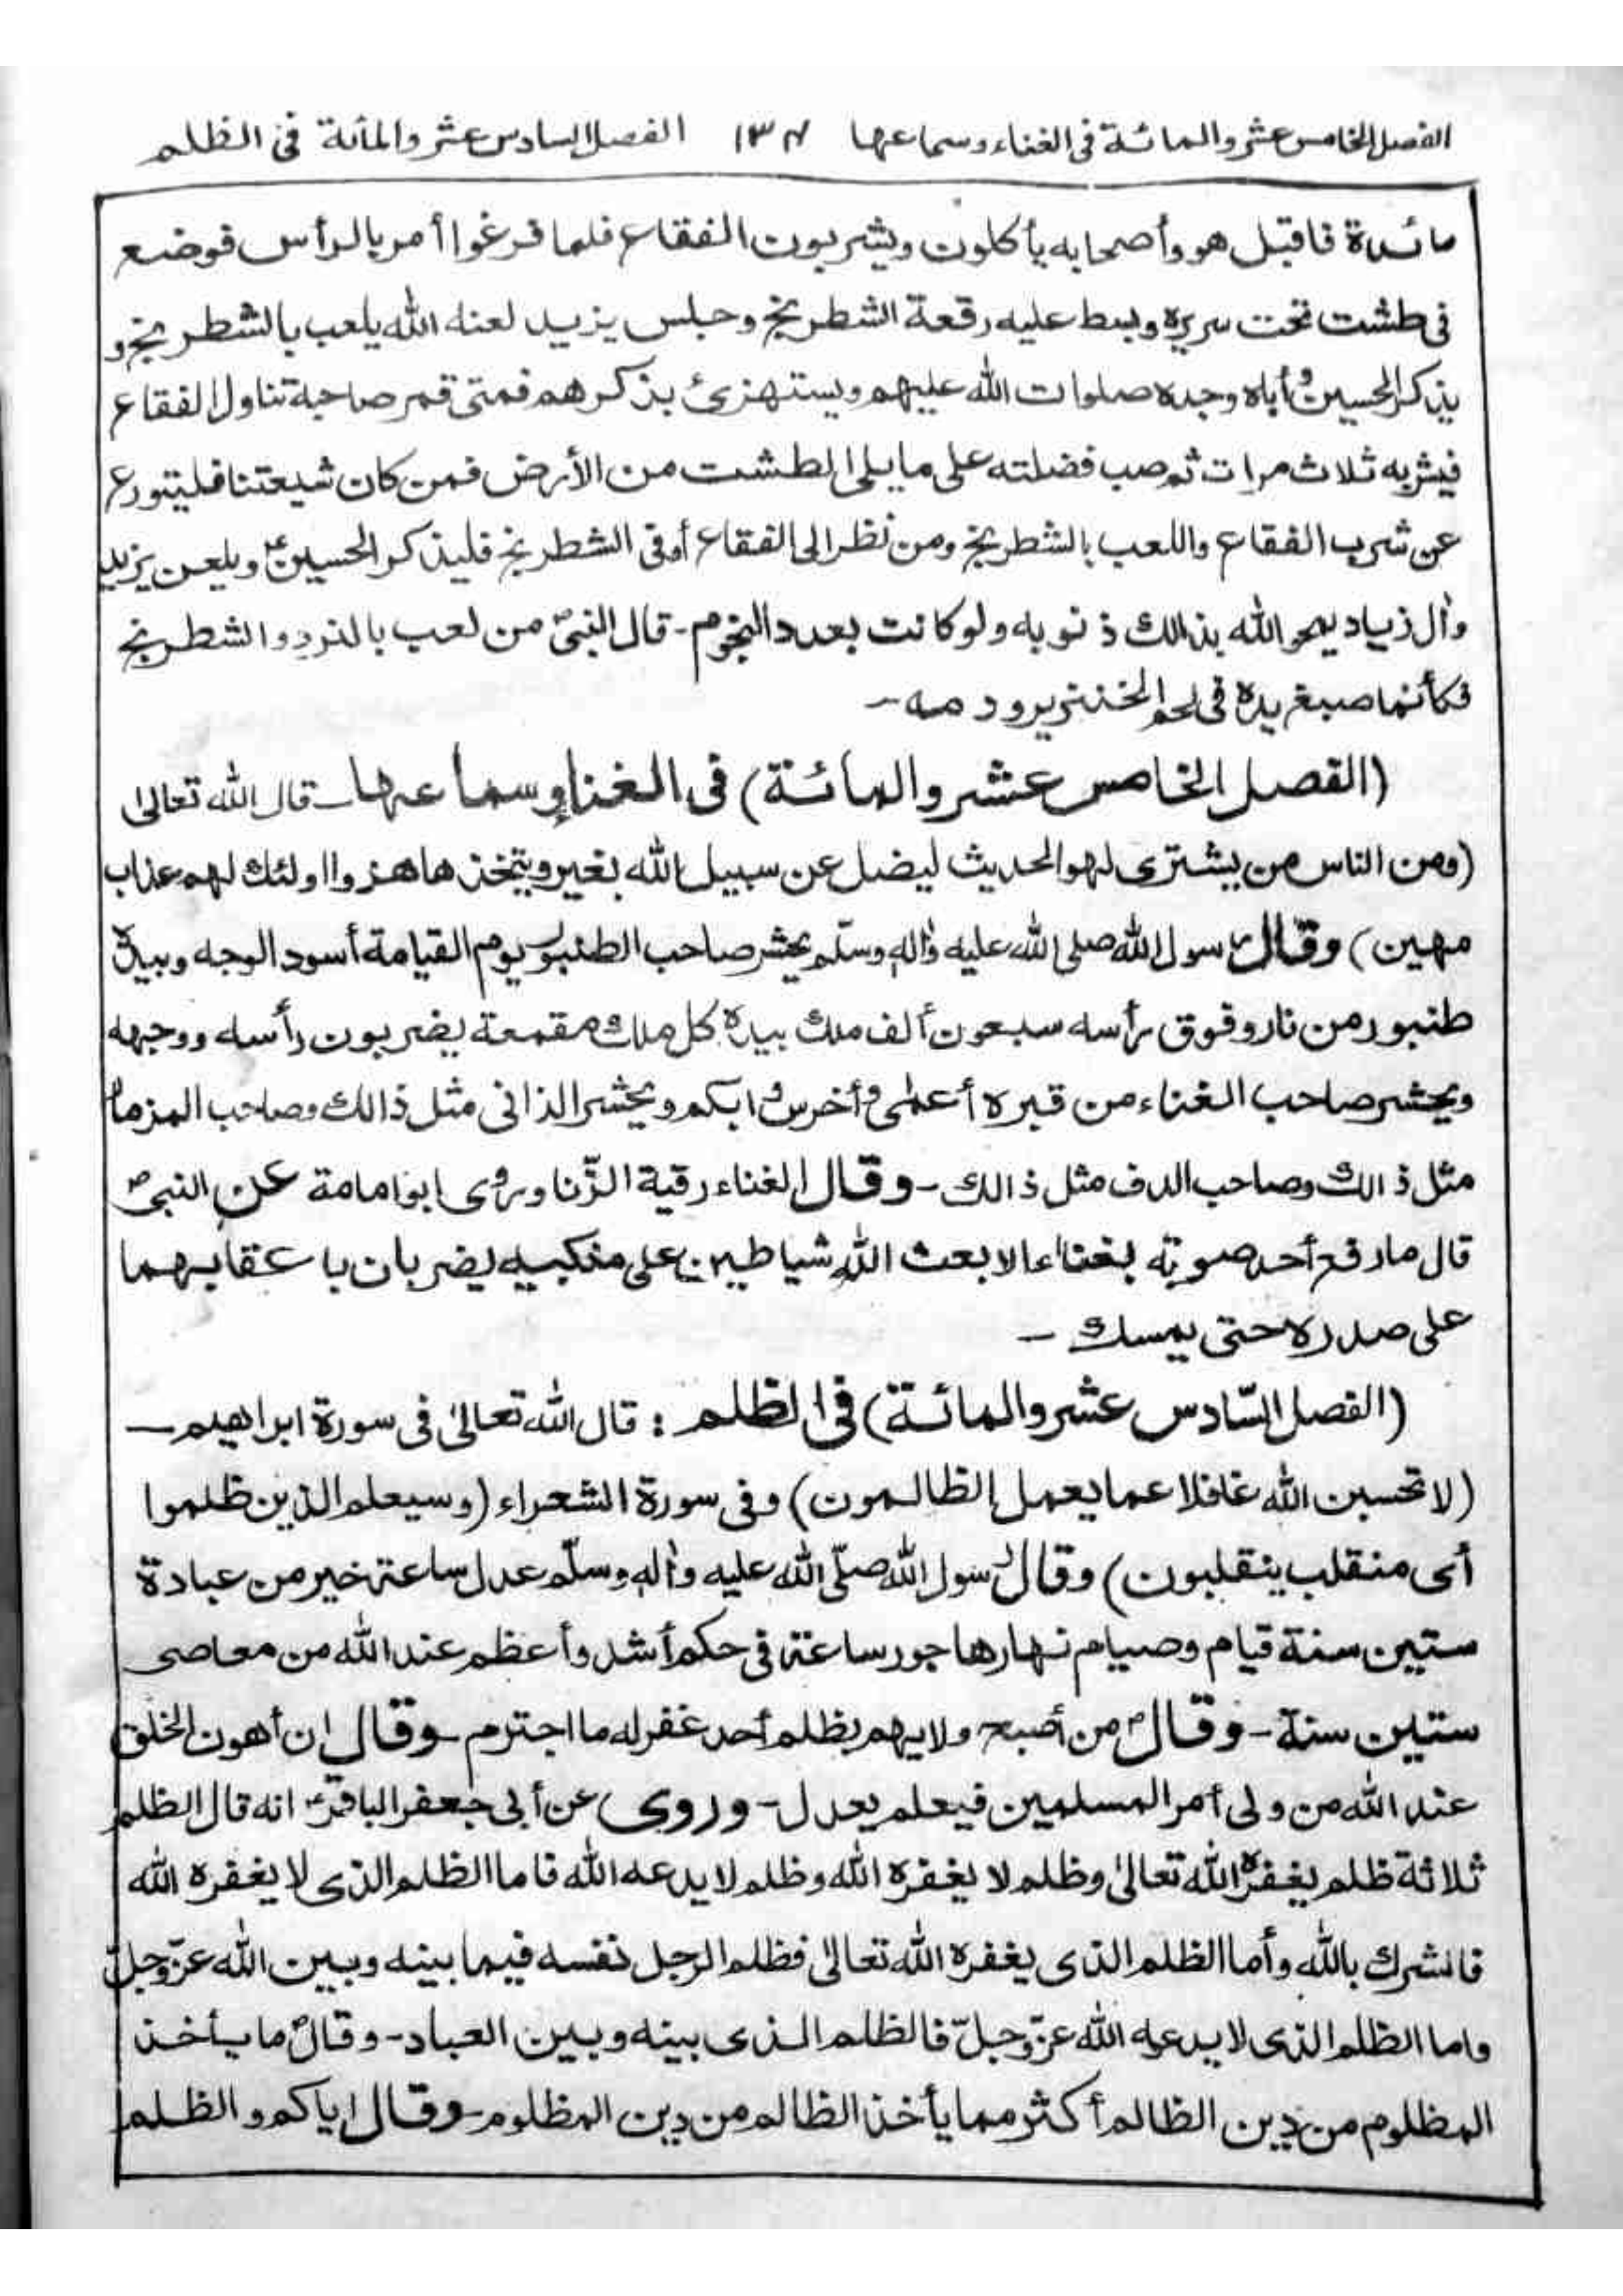 الفصل الخامس عشر والمائة فى الغناء وسماعها ١٣٧ الفصل السادس عشر والمأئة فى الظلم
مائدة فاقبل هو وأصحابه يأكلون ويشربون الفقاع فلما فرغوا أمر بالرأس فوضع
فى طشت تحت سريره وبسط عليه رقعة الشطرنج وجلس يزيد لعنه الله يلعب بالشطرنج و
يذكر الحسين وأباه وجده صلوات الله عليهم ويستهزئ بذكرهم فمتى قمر صاحبة تناول الفقاع
فيشربه ثلاث مرات ثم صب فضلته على ما يلى الطشت من الأرض فمن كان شيعتنا فليتورع
عن شرب الفقاع واللعب بالشطرنج ومن نظر الى الفقاع أو فى الشطرنج فليذكر الحسينؑ ويلعن يزيد
وأل زياد يمحو الله بذالك ذنوبه ولو كانت بعدد النجوم - قال النبىؐ من لعب بالنرد والشطرنج
فكأنما صبغ يده فى لحم الخنزير ودمه -
(الفصل الخامس عشر والمائة) فى الغناء وسماعها - قال الله تعالىٰ
(ومن الناس من يشترى لهو الحديث ليضل عن سبيل الله بغير ويتخذها هزوا اولئك لهم عذاب
مهين) وقال رسول الله صلى الله عليه وأله وسلّم يحشر صاحب الطنبور يوم القيامة أسود الوجه وبيده
طنبور من نار وفوق رأسه سبعون ألف ملك بيده كل ملك مقمعة يضربون رأسه ووجهه
ويحشر صاحب الغناء من قبره أعمىٰ وأخرس وابكم ويحشر الذانى مثل ذالك وصاحب المزمار
مثل ذالك وصاحب الدف مثل ذالك - وقال الغناء رقية الزّنا وروى ابو امامة عن النبىؐ
قال ما رفع أحد صوته بغناءا الا بعث الله شياطين على منكبيه يضربان باعقابهما
على صدره حتى يمسك -
(الفصل السّادس عشر والمائة) فى الظلم : قال الله تعالىٰ فى سورة ابراهيم -
(لا تحسبن الله غافلا عما يعمل الظالمون) وفى سورة الشعراء (وسيعلم الذين ظلموا
أى منقلب ينقلبون) وقال رسول الله صلّى الله عليه وأله وسلّم عدل ساعته خير من عبادة
ستين سنة قيام وصيام نهارها جور ساعته فى حكم أشد وأعظم عند الله من معاصى
ستين سنة - وقالؐ من أصبح ولا يهم بظلم أحد غفر له ما اجترم - وقال ان أهون الخلق
عند الله من ولى أمر المسلمين فيعلم يعدل - وروى عن أبى جعفر الباقرؑ انه قال الظلم
ثلاثة ظلم يغفره الله تعالىٰ وظلم لا يغفره الله وظلم لا يدعه الله فاما الظلم الذى لا يغفره الله
فالشرك بالله وأما الظلم الذى يغفره الله تعالىٰ فظلم الرجل نفسه فيما بينه وبين الله عزّوجلّ
واما الظلم الذى لا يدعه الله عزّوجلّ فالظلم الذى بينه وبين العباد - وقالؐ ما يأخذ
المظلوم من دين الظالم أكثر مما يأخذ الظالم من دين المظلوم - وقال اياكم والظلم